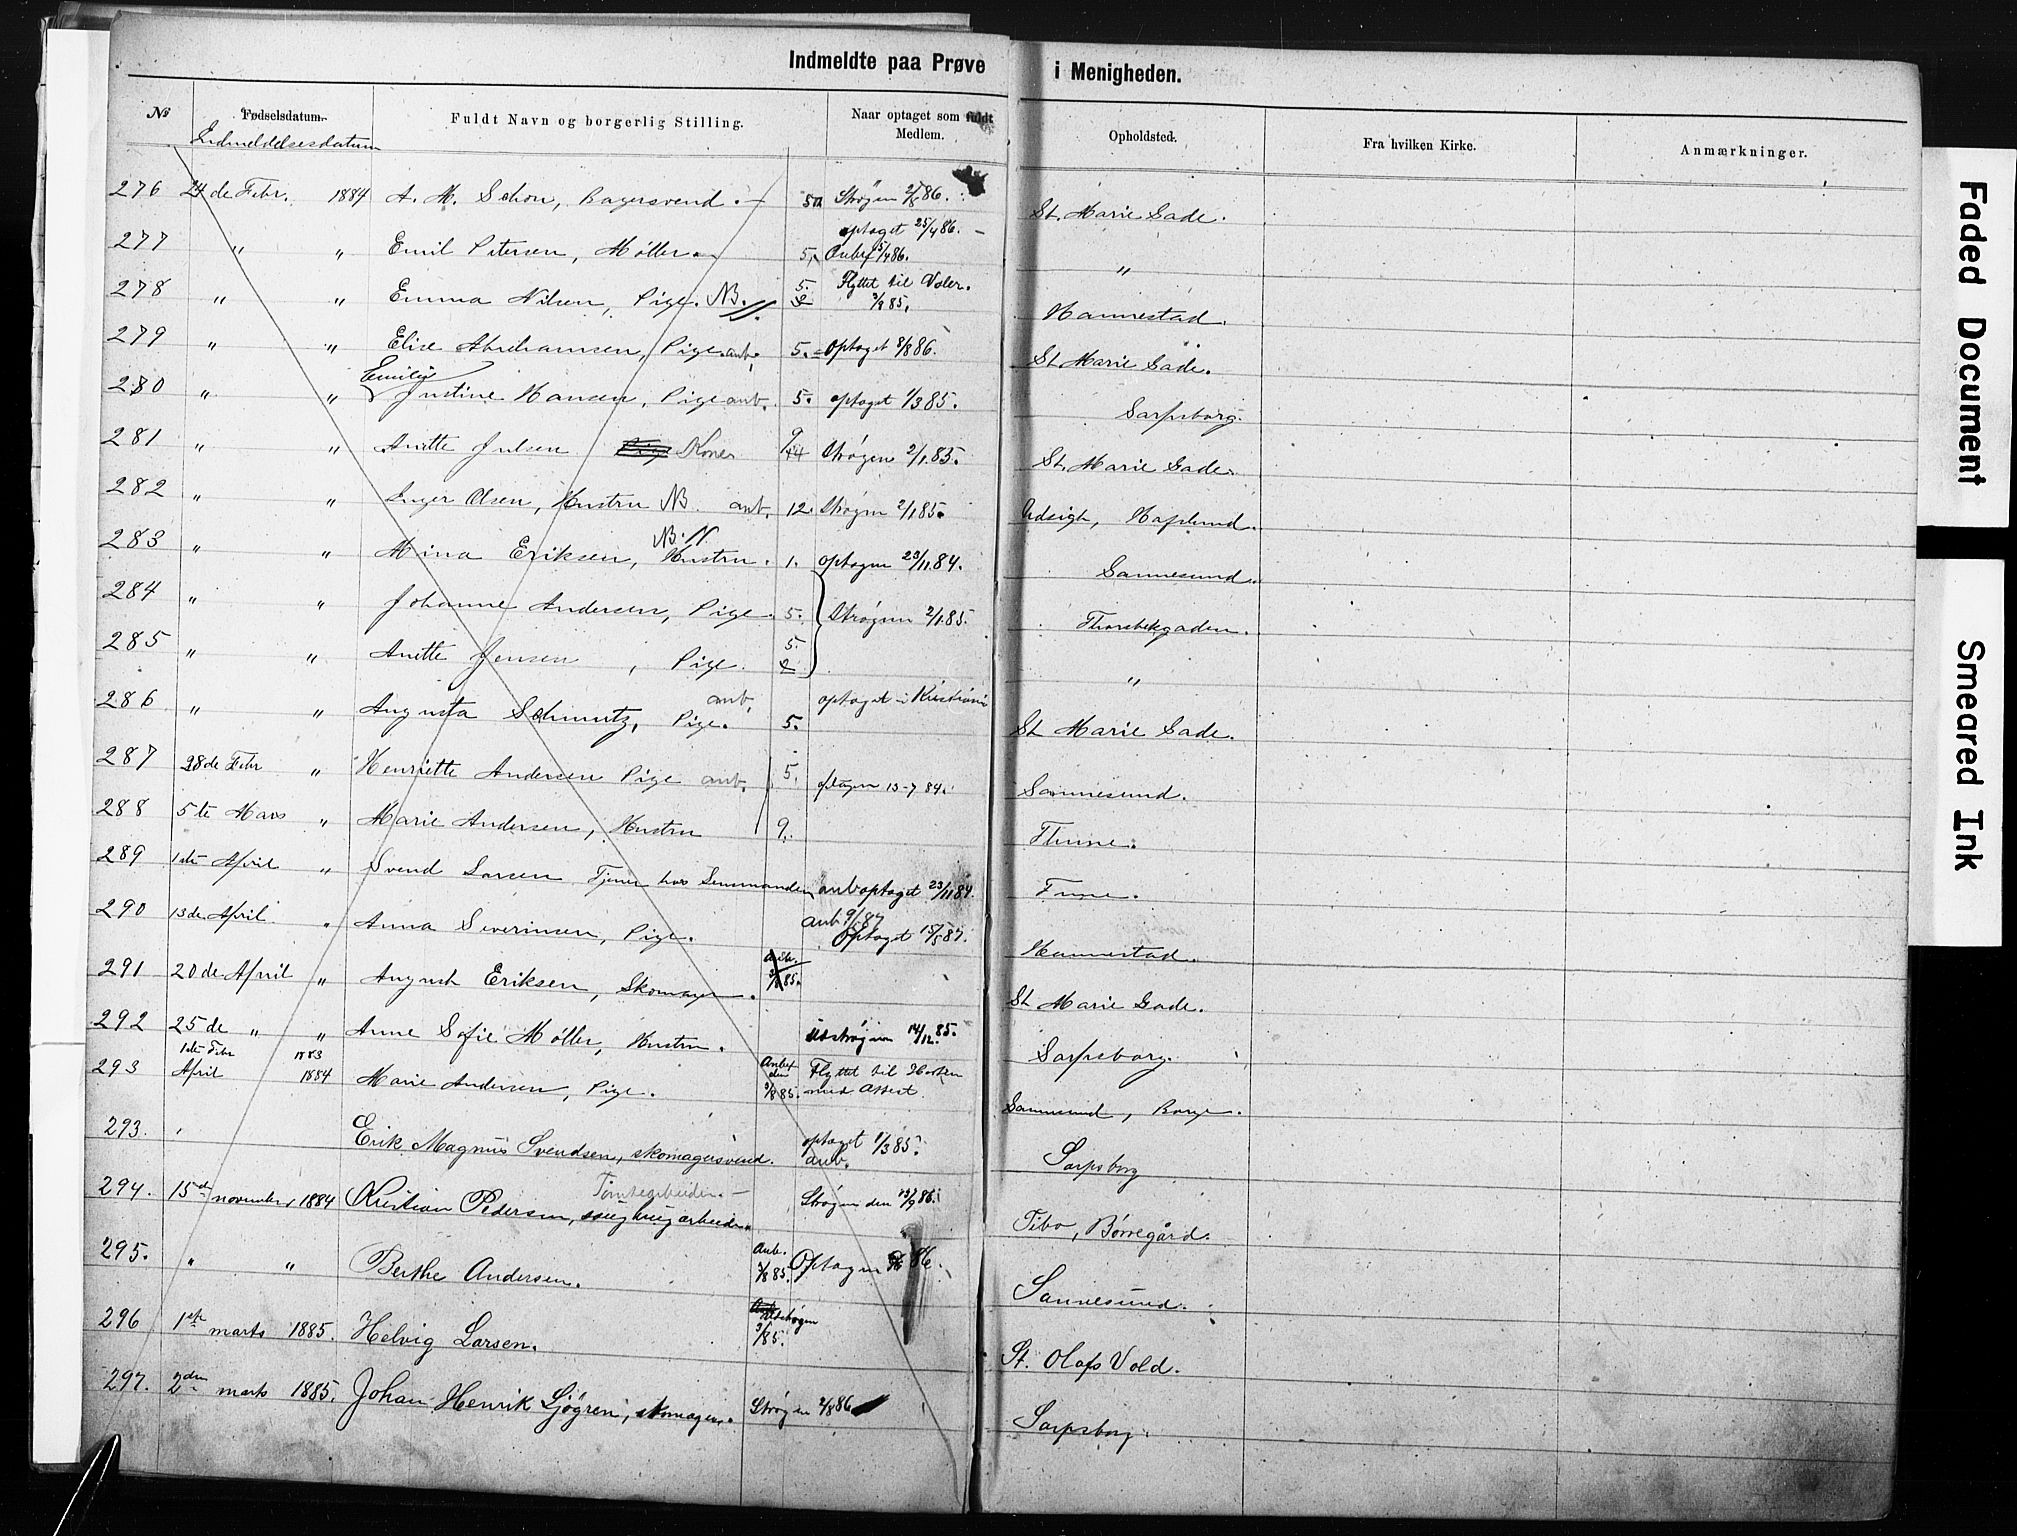 Indmeldte paa Prøve i Menigheden.
No Fødselsdatum. Fuldt Navn og borgerlig Stilling. Naar optaget som fuldt Medlem. Opholdsted. Fra hvilken Kirke. Anmærkninger.
Indmeldelsesdatum
276 24de Febr. 1884 A. M. Schon, Bagersvend. Strøgen 2/5 86. St. Marie Gade.
optaget 25/4 86.
277 " " Emil Petersen, Møller 5. Anbef 15/4 86. "
278 " " Emma Nilsen, Pige. NB. 5. 2 Flyttet til Valer. 3/8 85. Hannestad.
279 " " Elise Abrahamsen, Pige. anb. 5. Optaget 8/8 86. St. Marie Gade.
Emilie
280 " " Justine Hansen, Pige anb. 5. optaget 1/3 85. Sarpsborg.
281 " " Anette Julsen Pige Kone 9 14 Strøgen 2/1 85. St. Marie Gade.
282 " " Inger Olsen, Hustru NB. anb. 12. Strøgen 2/1 85. Udsigt, Haflund.
NB. //
283 " " Mina Eriksen, Hustru. 1. optagen 23/11 84. Sannesund.
284 " " Johanne Andersen, Pige. 5. Strøgen 2/1 85. Thorsbekgaden.
285 " " Anette Jensen, Pige. 5. 2 "
286 " " Augusta Schmutz, Pige. anb. 5. optaget i Kristiania St. Marie Gade.
287 28de Febr " Henriette Andersen Pige anb. 5. optagen 13-7 84. Sannesund.
288 5te Mars " Marie Andersen, Hustru 9. Thune.
289 1ste April " Svend Larsen Tjener hos Lensmanden anb optaget 23/11 84. Tune.
290 13de April " Anna Severinsen, Pige. anb. 9/5 87 Optaget 15/5 87. Hannestad.
291 20de April " August Eriksen, Skomager. Anb. 3/8 85. St. Marie Gade.
292 25de " " Anne Sofie Møller, Hustru. Udstrøgen 14/12 85. Sarpsborg.
1ste Febr 1883
293 April 1884 Marie Andersen, Pige. Anbef den 3/8 85. Flyttet til Horten med Attest. Sannesund, Borge.
293. " Erik Magnus Svendsen, skomagersvend. optaget 1/3 85. anb. Sarpsborg
Tomtearbeider.
294. 15de november 1884 Kristian Pedersen, Strøgen den 13/9 86. Tibo, Børregård.
295. " " Berthe Andersen. Anb. 3/8 85. Optagen 86. Sannesund.
296 1ste marts 1885. Helvig Larsen. Udstrøgen 3/85. St. Olafs Vold.
297. 2den marts 1885. Johan Henrik Sjøgren, skomager. Strøgen 2/8 86 Sarpsborg.
Faded Document
Smeared Ink